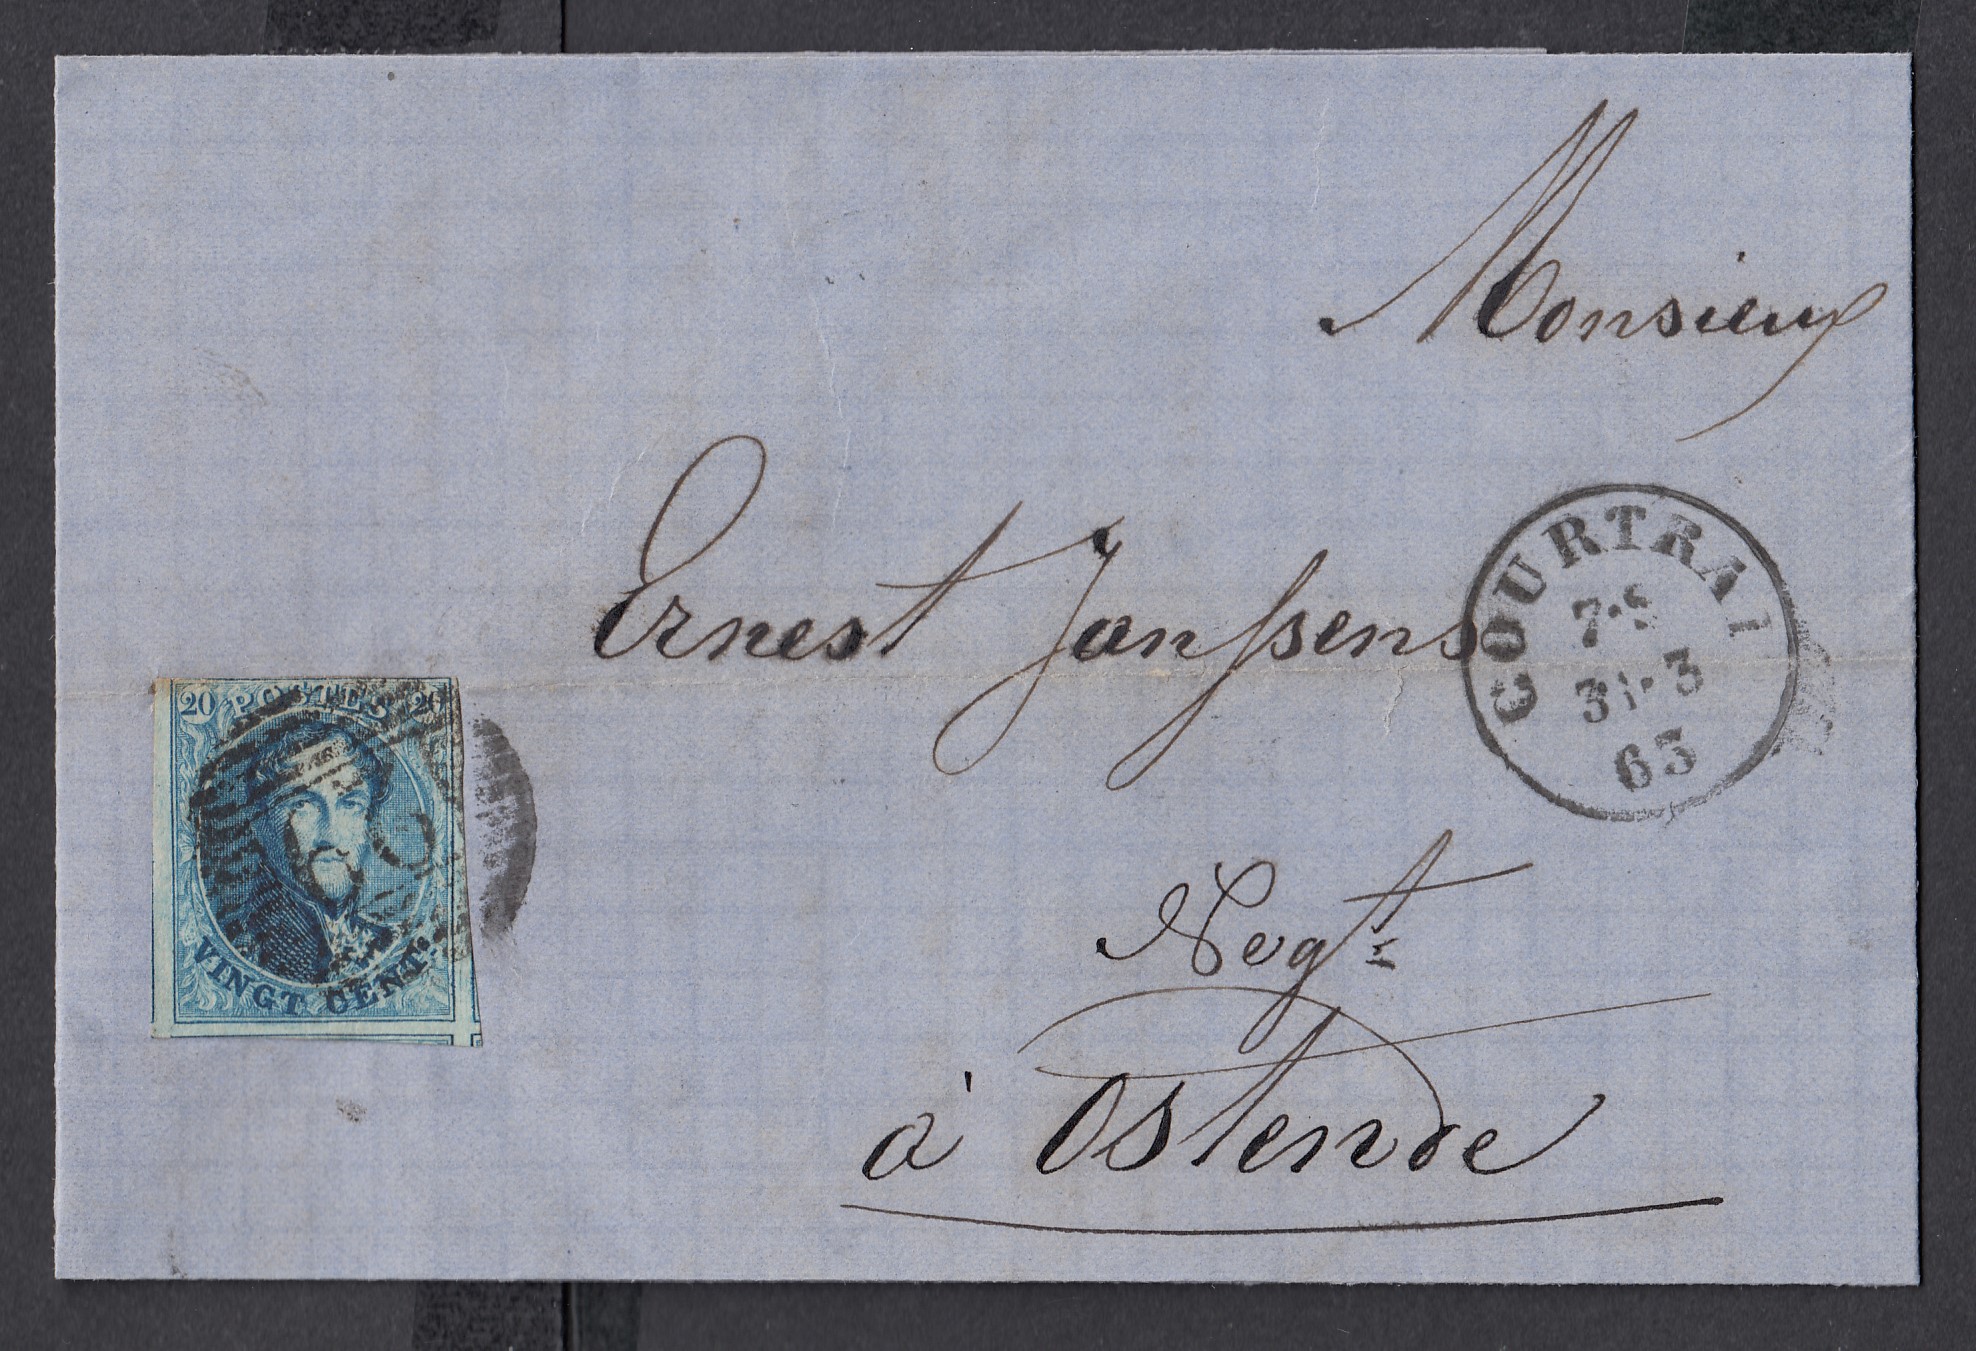 Monsieur
Ernest Janssens
Negt
à Ostende
COURTRAI
31·3
63
20 POSTES 20
VINGT CENT.